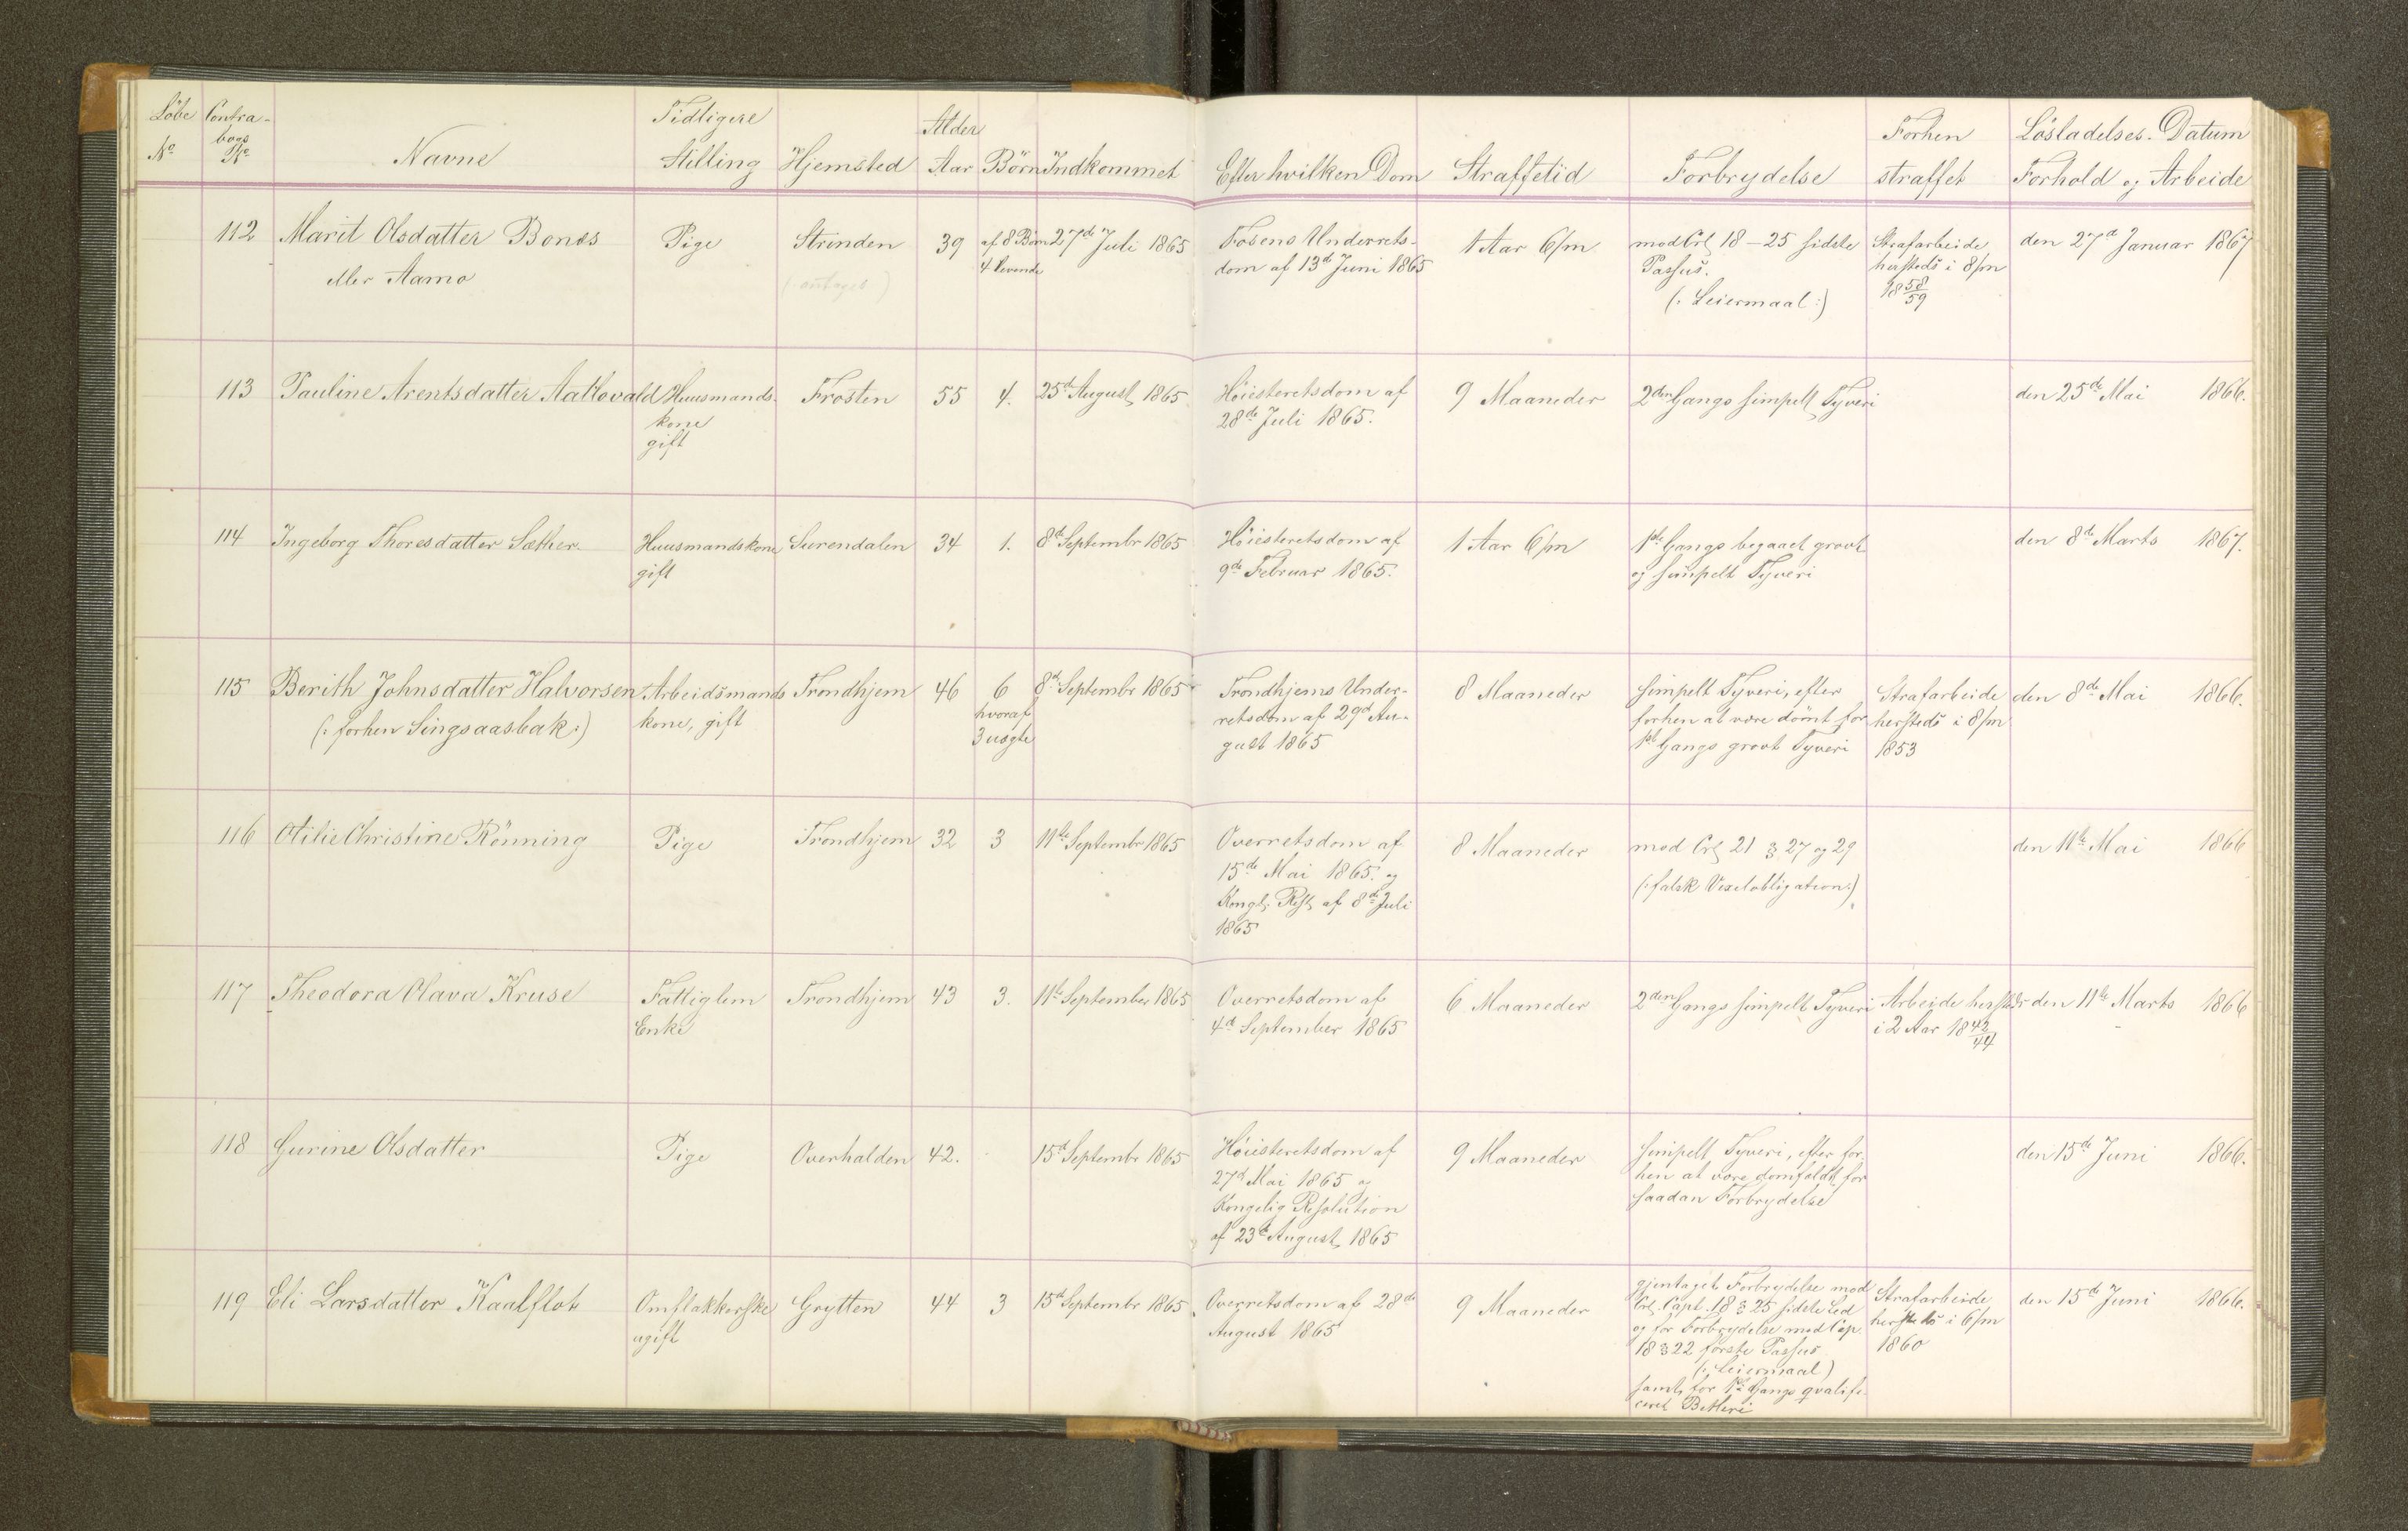 Løbe No
Contra-
bogs
No
Navne
Tidligere
Stilling
Hjemsted
Alder
Aar
Børn
Indkommet
Efter hvilken Dom
Straffetid
Forbrydelse
Forhen
straffet
Løsladelses-Datum
Forhold og Arbeide
112
Marit Olsdatter Bones
eller Aamo
Pige
Strinden
(: antaget )
39
af 8 Børn
4 levende
27de Juli 1865
Fosens Underrets-
dom af 13d Juni 1865
1 Aar 6/m
mod Crl 18-25 sidste
Passus.
(: Leiermaal :)
Strafarbeide
hersteds i 8/m
18 58/59
den 27d Januar 1867
113
Pauline Arentsdatter Aatlovald
Huusmands-
kone
gift
Frosten
55
4.
25de August 1865
Høiesteretsdom af
28de Juli 1865.
9 Maaneder
2den Gangs simpelt Tyveri
den 25de Mai 1866.
114
Ingeborg Thoresdatter Sæther.
Huusmandskone
gift
Surendalen
34
1.
8de Septembr 1865
Høiesteretsdom af
9de Februar 1865.
1 Aar 6/m
1ste Gangs begaaet grovt
og simpelt Tyveri
den 8de Marts 1867.
115
Berith Johnsdatter Halvorsen
(: forhen Singsaasbak :)
Arbeidsmands
kone, gift
Trondhjem
46
6
hvoraf
3 uægte
8de Septembr 1865
Trondhjems Under-
retsdom af 29d Au-
gust 1865
8 Maaneder
simpelt Tyveri, efter
forhen at være dømt for
1st Gangs grovt Tyveri
Strafarbeide
hersteds i 8/m
1853
den 8de Mai 1866.
116
Otilie Christine Rønning
Pige
Trondhjem
32
3
11te Septembr 1865
Overretsdom af
15de Mai 1865. og
Kongl. Rest af 8de Juli
1865
8 Maaneder
mod Crl 21 § 27 og 29
(: falsk Vexelobligation :)
den 11te Mai 1866
117
Theodora Olava Kruse
Fattiglem
Enke
Trondhjem
43
3.
11te September 1865
Overretsdom af
4d September 1865
6 Maaneder
2den Gangs simpelt Tyveri
Arbeide hersteds
i 2 Aar 18 42/44
den 11te Marts 1866
118
Gurine Olsdatter
Pige
Overhalden
42.
15d Septembr 1865
Høiesteretsdom af
27d Mai 1865 og
Kongelig Resolution
af 23d August 1865
9 Maaneder
simpelt Tyveri, efter for-
hen at være domfældt for
saadan Forbrydelse
den 15de Juni 1866.
119
Eli Larsdatter Kaalflot
Omflakkerske
ugift
Grytten
44
3
15d Septembr 1865
Overretsdom af 28de
August 1865
9 Maaneder
gjentaget Forbrydelse mod
Crl. Capt. 18 § 25 sidste Led
og for Forbrydelse mod Cap.
18 § 22 første Passus
(: Leiermaal )
samt for 1ste Gangs qvalifi-
ceret Betleri
Strafarbeide
hersteds i 6/m
1860
den 15de Juni 1866.